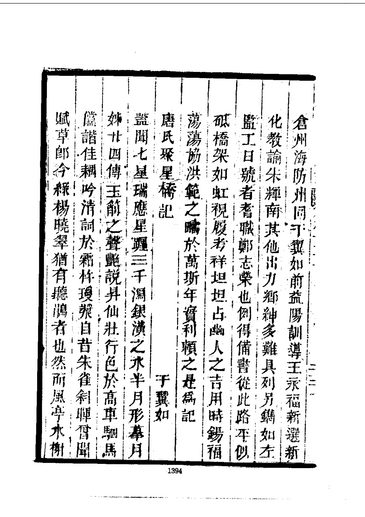 倉州海防州同于翼如前益陽訓導王永福新選新
化教諭朱輝南其他出力鄉紳多難具列另鐫如左
監工日號者耆職鄭志榮也例得備書從此路平似
砥橋架如虹視履考祥坦坦占幽人之吉用時錫福
蕩蕩協洪範之疇於萬斯年資利賴之是爲記
唐氏聚星橋記
于翼如
蓋聞七星瑞應星躔三千濶銀漢之水半月形摹月
廿四傳玉前之聲艷說丹仙壯行色於高車駟馬
諧佳耦吟清詞於 杵瓊漿自昔朱雀斜暉曾聞
賦草郎今綠楊曉翠猶有聽鵑者也然而風亭水榭
1394